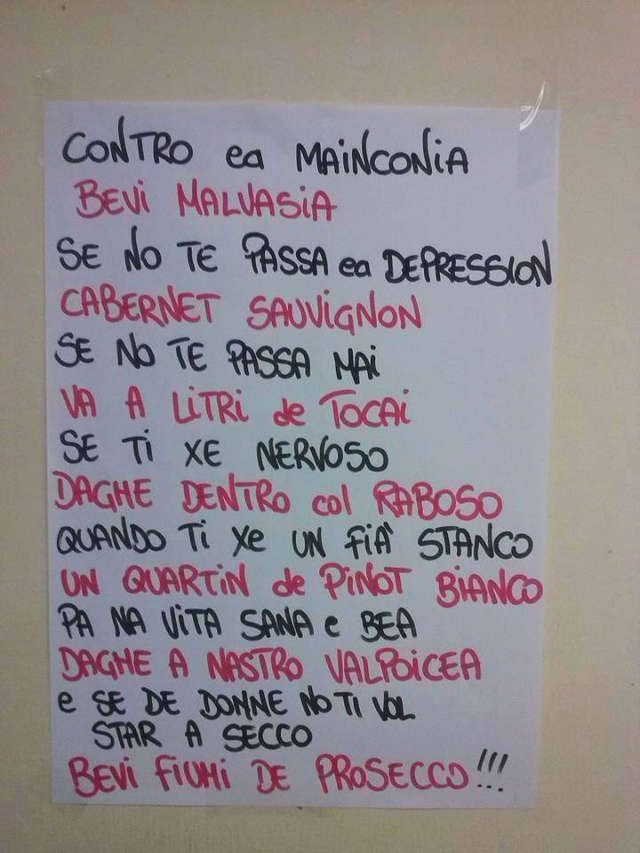 CONTRO ea MAINCONIA
BEVI MALVASIA
SE NO TE PASSA ea DEPRESSION
CABERNET SAUVIGNON
SE NO TE PASSA MAI
VA A LITRI de TOCAI
SE TI XE NERVOSO
DAGHE DENTRO col RABOSO
QUANDO Ti Xe UN FIÀ STANCO
UN QUARTIN de PINOT BIANCO
PA NA VITA SANA e BEA
DAGHE A NASTRO VALPOICEA
e SE DE DONNE NO TI VOL
STAR A SECCO
BEVI FIUMI DE PROSECCO!!!